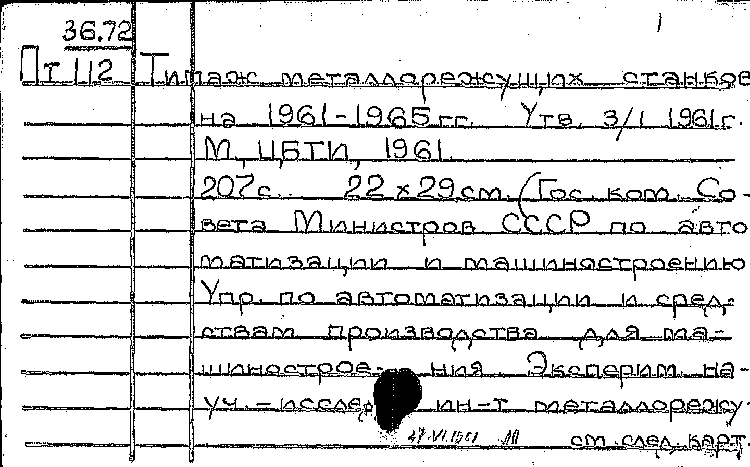 36.72
1
Пт 112 Типаж металлорежущих станков
на 1961-1965 гг. Утв. 3/I 1961г.
М., ЦБТИ, 1961.
207с. 22 x 29 см. (Гос. ком. Со-
вета Министров СССР по авто
матизации и машиностроению
Упр. по автоматизации и сред-
ствам производства для ма-
шинострое- ния. Эксперим. на-
уч.-исслед. ин-т металлорежу-
см. след. карт.